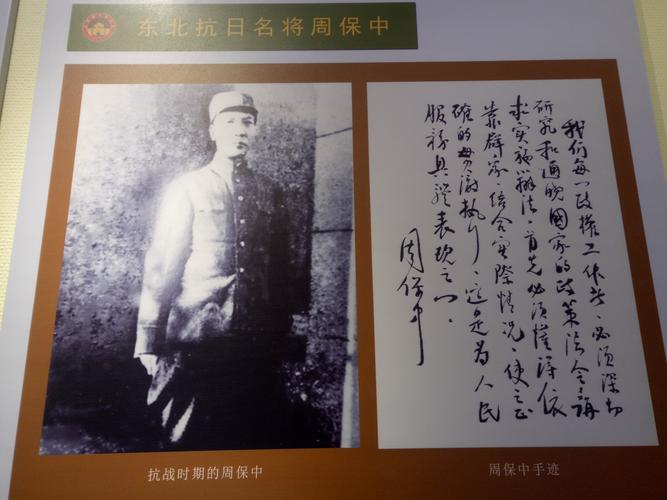 东北抗日名将周保中
我们每一政權工作者、必须深切
研究和通晓國家的政策法令、講
求实施辦法。首先必须懂得依
靠群眾、结合實際情况、使之正
確的貫澈执行、这是为人民
服務具體表现之一。
周保中
抗战时期的周保中
周保中手迹